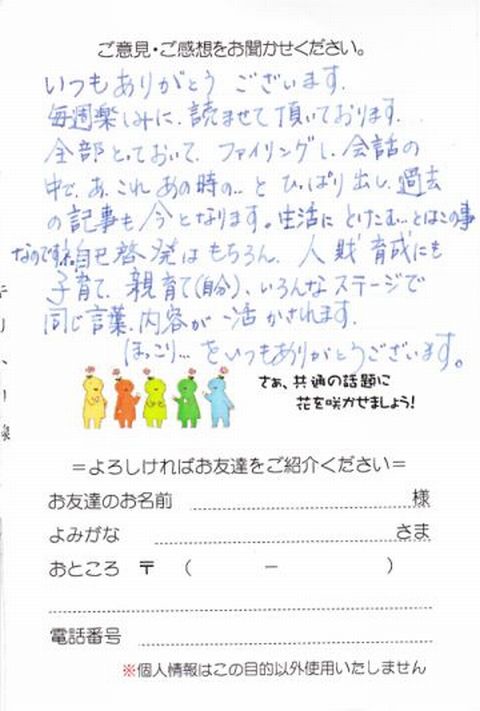 ご意見・ご感想をお聞かせください。
いつもありがとう ございます.
毎週楽しみに、読ませて頂いております.
全部とっておいて、ファイリングし、会話の
中で、あ、これ あの時の…と ひっぱり出し、過去
の記事も今となります。生活に とけこむ…とはこの事
なのですネ。自己啓発はもちろん、人財育成にも
子育て、親育て(自分)、いろんなステージで
同じ言葉、内容が 活かされます.
ほっこり…をいつもありがとうございます。
さぁ、共通の話題に
花を咲かせましょう!
=よろしければお友達をご紹介ください=
お友達のお名前 様
よみがな さま
おところ 〒 ( − )
電話番号
※個人情報はこの目的以外使用いたしません